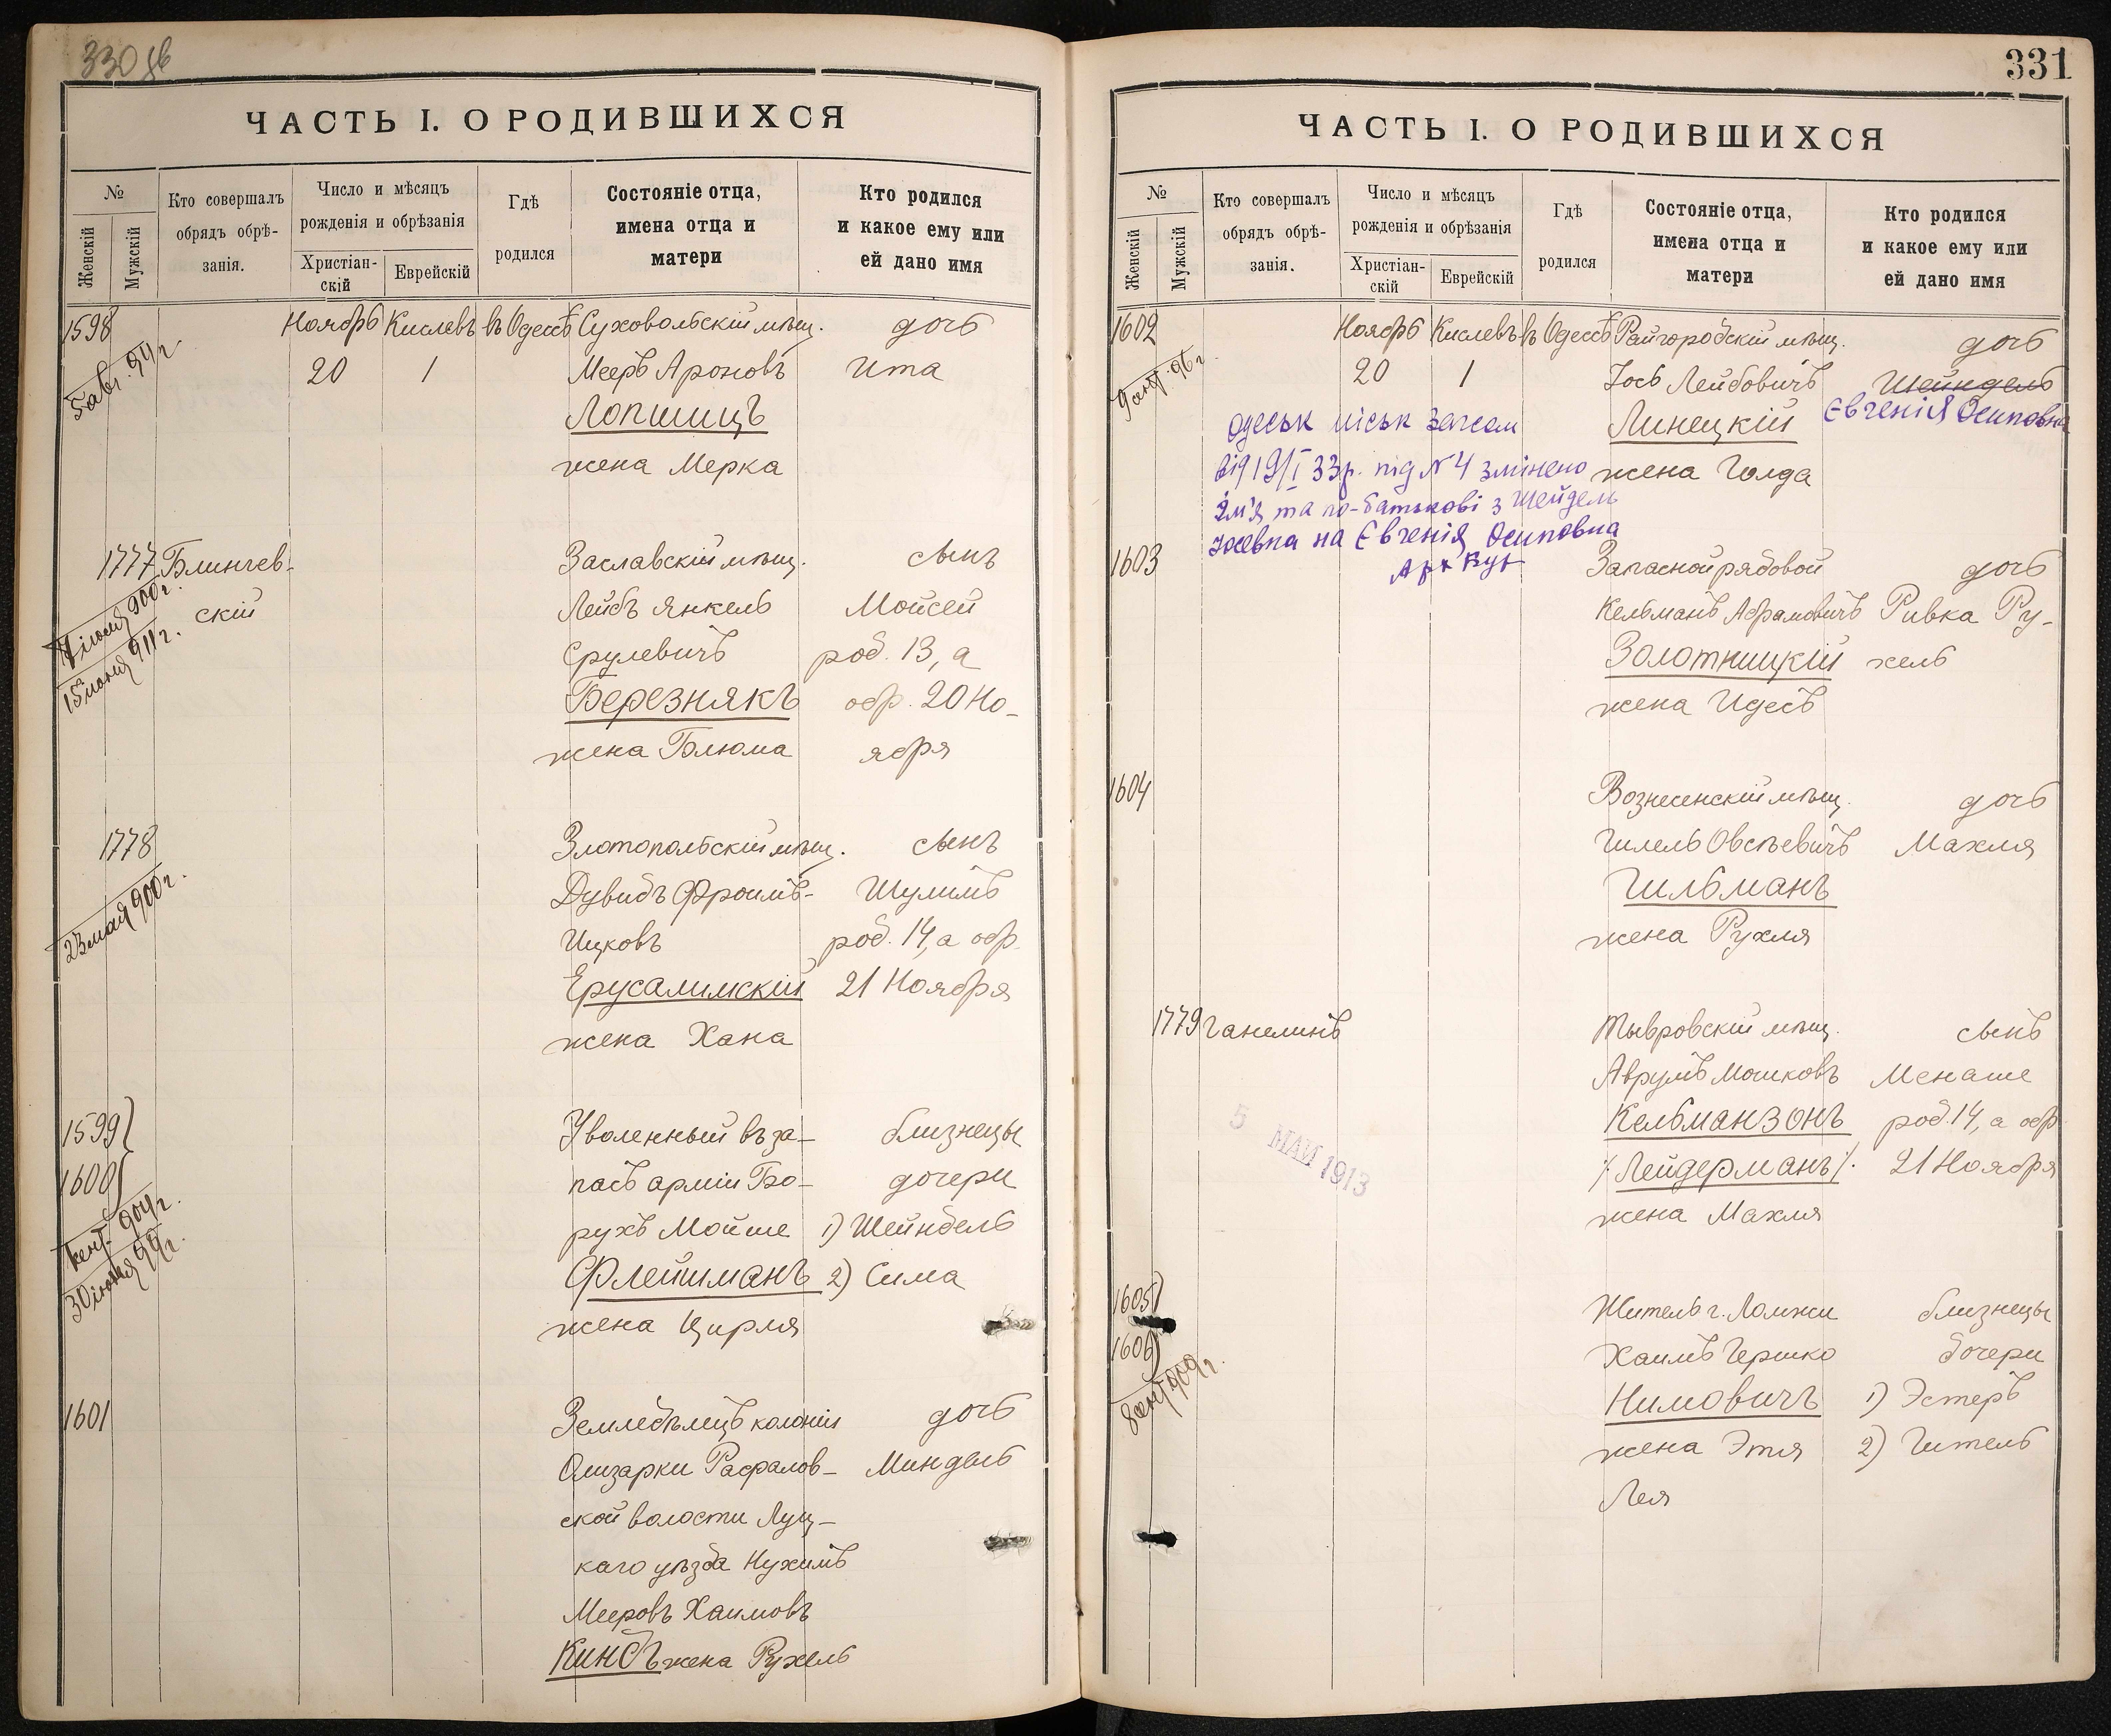 330 об
ЧАСТЬ I. О РОДИВШИХСЯ
№
Женскій
Мужскій
Кто совершалъ
обрядъ обрѣ-
занія.
Число и мѣсяцъ
рожденія и обрѣзанія
Христіан-
скій
Еврейскій
Гдѣ
родился
Состояніе отца,
имена отца и
матери
Кто родился
и какое ему или
ей дано имя
1598 Ноябрь Кислевъ въ Одессѣ Суховольскій мѣщ. дочь
5 авг. 94 г.
20 1 Мееръ Ароновъ Ита
Лопшицъ
жена Мерка
1777 Блинчев- Заславскій мѣщ. сынъ
скій Лейбъ Янкель Мойсей
900 г.
15 июня 911 г.
Срулевичъ род. 13, а
Березнякъ обр. 20 Но-
жена Блюма ября
1778 Златопольскій мѣщ. сынъ
23 мая 900 г.
Дувидъ Фроимъ- Шулимъ
Ицковъ род. 14, а обр.
Ерусалимскій 21 Ноября
жена Хана
1599 Уволенный въ за- близнецы
1600 пасъ арміи Бо- дочери
сент. 904 г.
рухъ Мойше 1) Шейндель
30 99 г.
Флейшманъ 2) Сима
жена Цирля
1601 Земледѣлецъ колоніи дочь
Олизарки Рафалов- Миндель
ской волости Луц-
каго уѣзда Нухимъ
Мееровъ Хаимовъ
Киндъ жена Рухель
331
ЧАСТЬ I. О РОДИВШИХСЯ
№
Женскій
Мужскій
Кто совершалъ
обрядъ обрѣ-
занія.
Число и мѣсяцъ
рожденія и обрѣзанія
Христіан-
скій
Еврейскій
Гдѣ
родился
Состояніе отца,
имена отца и
матери
Кто родился
и какое ему или
ей дано имя
1602 Ноябрь Кислевъ въ Одессѣ Райгородскій мѣщ. дочь
96 г.
20 1 Іось Лейбовичъ Шейндель
Євгенія Осиповна
Линецкій
жена Голда
Одеськ міськ Загсом
від 19/I 33 р. під № 4 змінено
Ім'я та по-батькові з Шейдель
Іосевна на Євгенія Осиповна
1603 Запасной рядовой дочь
Кельманъ Абрамовичъ Ривка Ру-
Золотницкій хель
жена Идесъ
1604 Вознесенскій мѣщ. дочь
Гилель Овсѣевичъ Махля
Гильманъ
жена Рухля
1779 Ганелинъ Тывровскій мѣщ. сынъ
Аврумъ Мошковъ Менаше
Кельманзонъ род. 14, а обр.
/Лейдерманъ/. 21 Ноября
жена Махля
5 МАЙ 1913
1605 Житель г. Ломжи близнецы
1606 Хаимъ Гершко дочери
8 сент. 909 г.
Нимовичъ 1) Эстеръ
жена Этя 2) Гитель
Лея